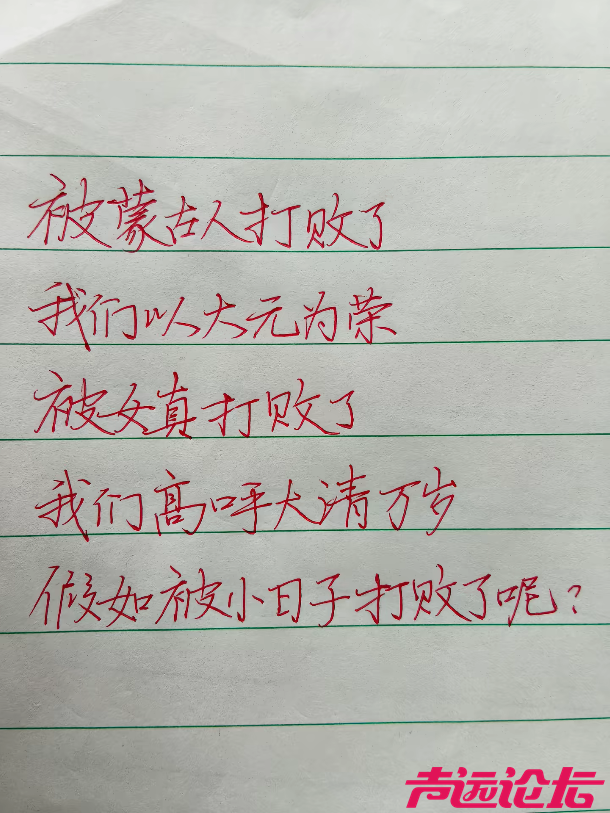 被蒙古人打败了
我们以大元为荣
被女真打败了
我们高呼大清万岁
假如被小日子打败了呢?
声远论坛